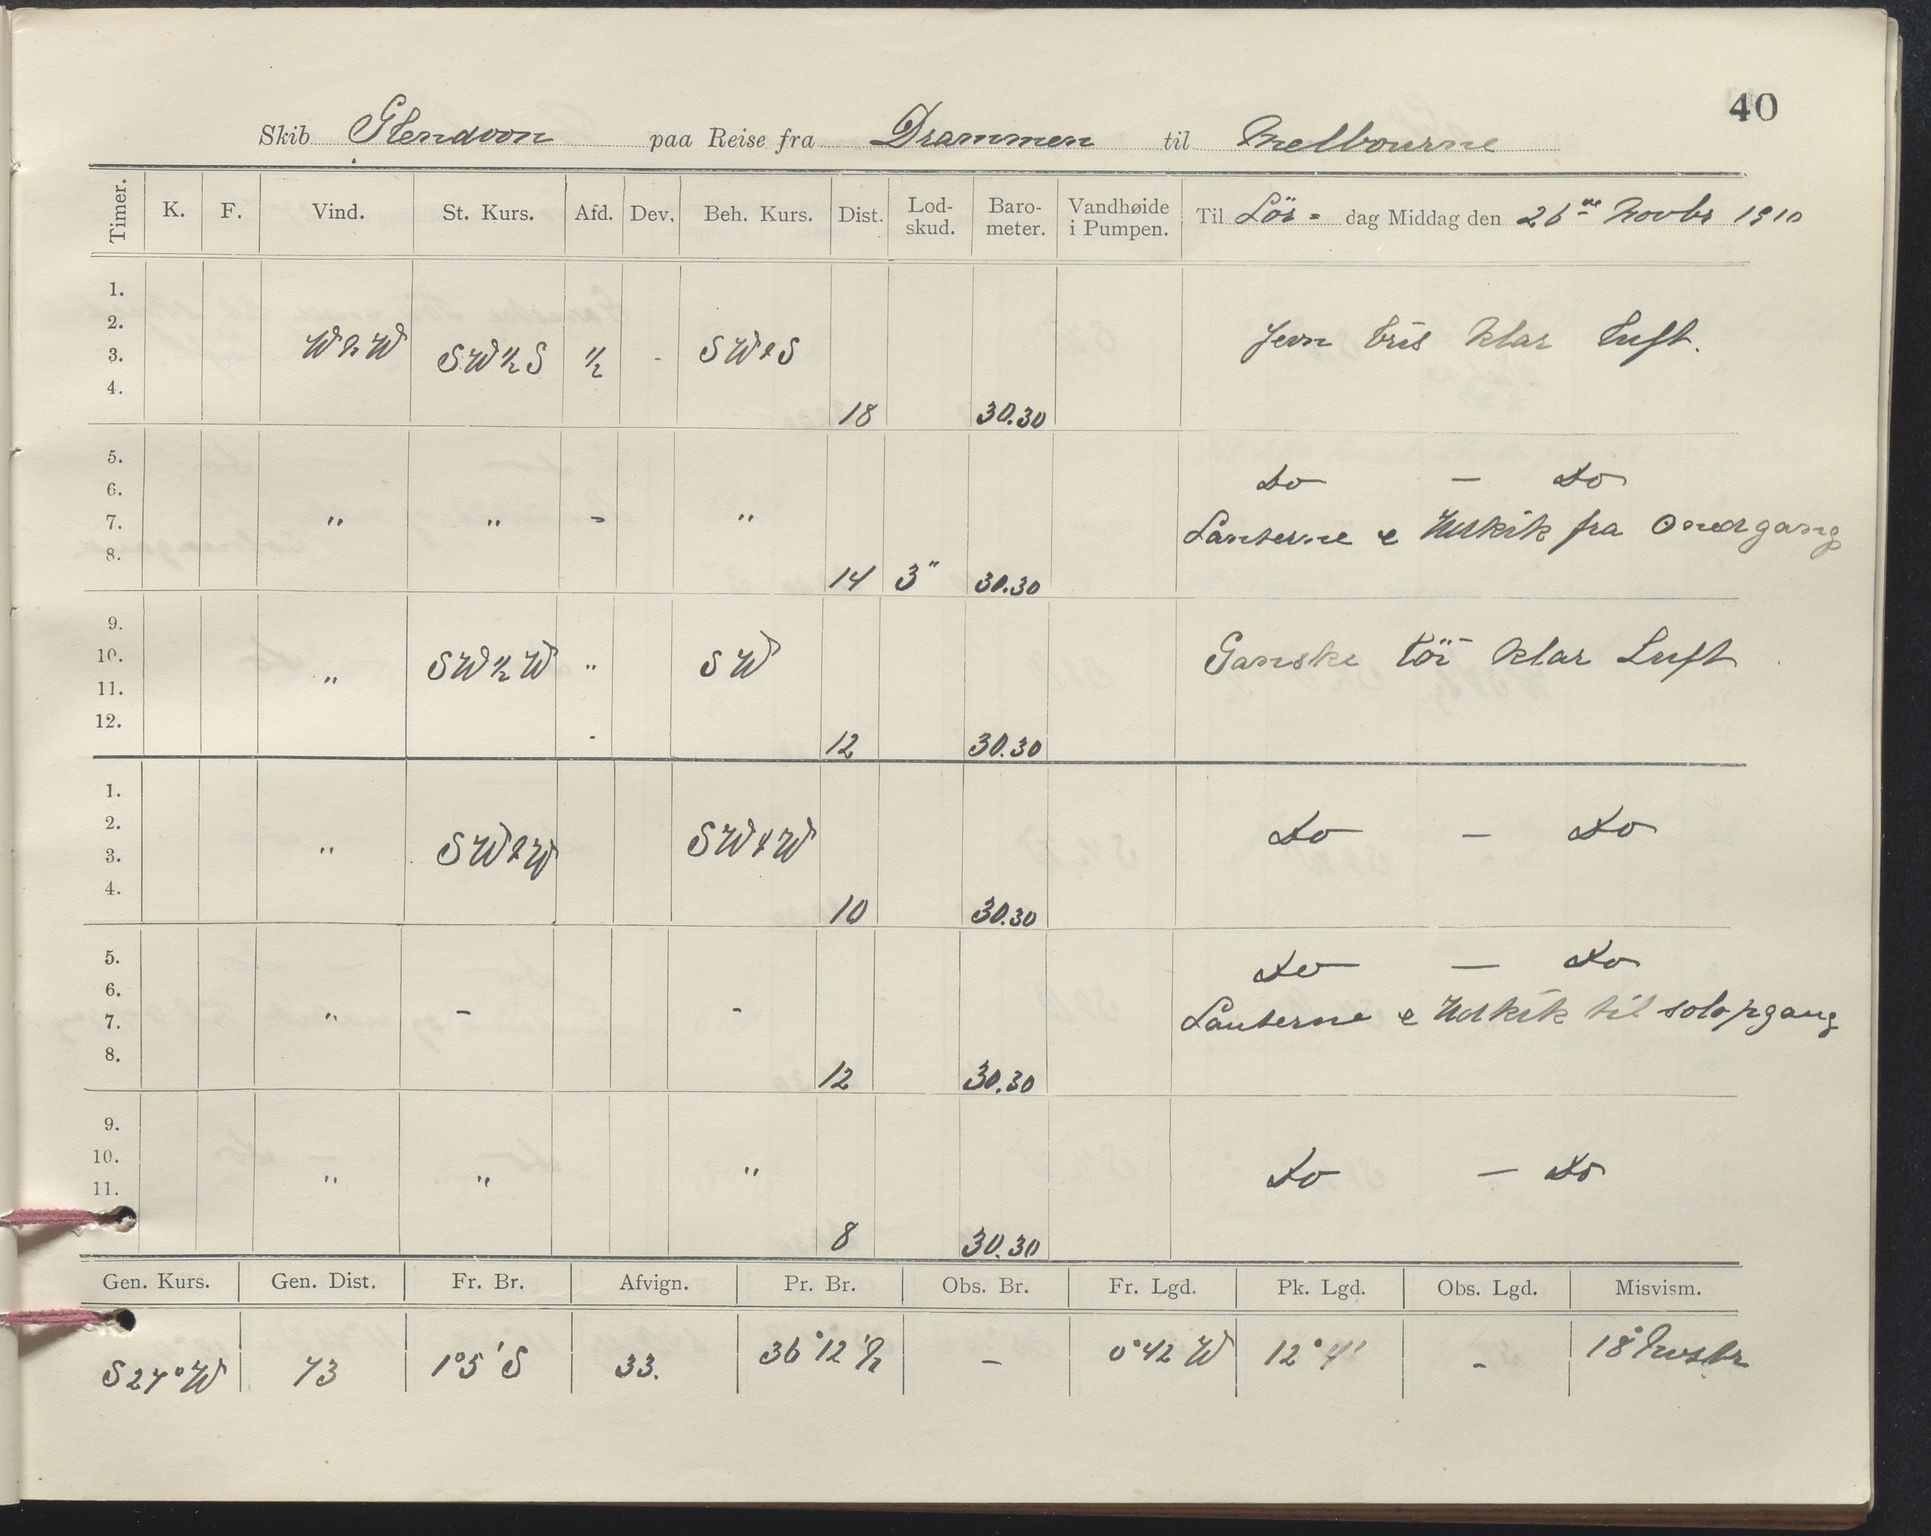 40
Skib Glendoon paa Reise fra Drammen til Melbourne
Timer. K. F. Vind. St. Kurs. Afd. Dev. Beh. Kurs. Dist. Lod-skud. Baro-meter. Vandhøide i Pumpen. Til Lör- dag Middag den 26 Novbr 1910
1.
2.
3. SW½S ½ - Jevn bris klar Luft.
4. 18 30.30
5. Do - Do
6.
7. " " - " Lanterne & Udkik fra nedgang
8. 14 3" 30.30
9.
10. SW½W " SW Ganske Tör klar Luft
11. "
12. 12 30.30
1.
2. Do - Do
3. "
4. 10 30.30
5. Do - Do
6.
7. " - - Lanterne & Udkik til solopgang
8. 12 30.30
9.
10. " " " Do - Do
11.
8 30.30
Gen. Kurs. Gen. Dist. Fr. Br. Afvign. Pr. Br. Obs. Br. Fr. Lgd. Pk. Lgd. Obs. Lgd. Misvism.
S 27° W 73 1°5' S 33. 36°12' - 0°42 W 12°4' - 18°